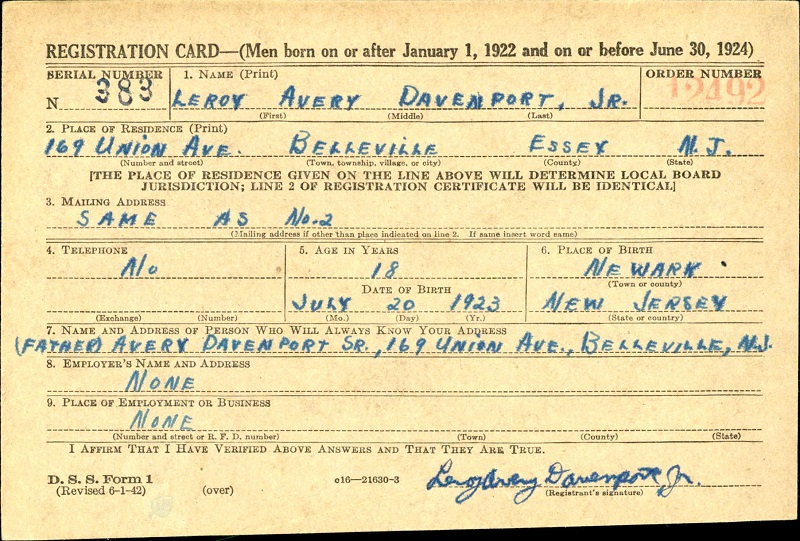 REGISTRATION CARD—(Men born on or after January 1, 1922 and on or before June 30, 1924)
SERIAL NUMBER 1. NAME (Print) ORDER NUMBER
N 383 LEROY AVERY DAVENPORT, JR. 12492
(First) (Middle) (Last)
2. PLACE OF RESIDENCE (Print)
169 UNION AVE. BELLEVILLE ESSEX N.J.
(Number and street) (Town, township, village, or city) (County) (State)
[THE PLACE OF RESIDENCE GIVEN ON THE LINE ABOVE WILL DETERMINE LOCAL BOARD
JURISDICTION; LINE 2 OF REGISTRATION CERTIFICATE WILL BE IDENTICAL]
3. MAILING ADDRESS
SAME AS NO.2
(Mailing address if other than place indicated on line 2. If same insert word same)
4. TELEPHONE 5. AGE IN YEARS 6. PLACE OF BIRTH
No 18 NEWARK
(Town or county)
DATE OF BIRTH
JULY 20 1923 NEW JERSEY
(Exchange) (Number) (Mo.) (Day) (Yr.) (State or country)
7. NAME AND ADDRESS OF PERSON WHO WILL ALWAYS KNOW YOUR ADDRESS
(FATHER) AVERY DAVENPORT SR., 169 UNION AVE., BELLEVILLE, N.J.
8. EMPLOYER'S NAME AND ADDRESS
NONE
9. PLACE OF EMPLOYMENT OR BUSINESS
NONE
(Number and street or R. F. D. number) (Town) (County) (State)
I AFFIRM THAT I HAVE VERIFIED ABOVE ANSWERS AND THAT THEY ARE TRUE.
D. S. S. Form 1
(Revised 6-1-42) (over) c16—21630-3 Leroy Avery Davenport Jr.
(Registrant's signature)